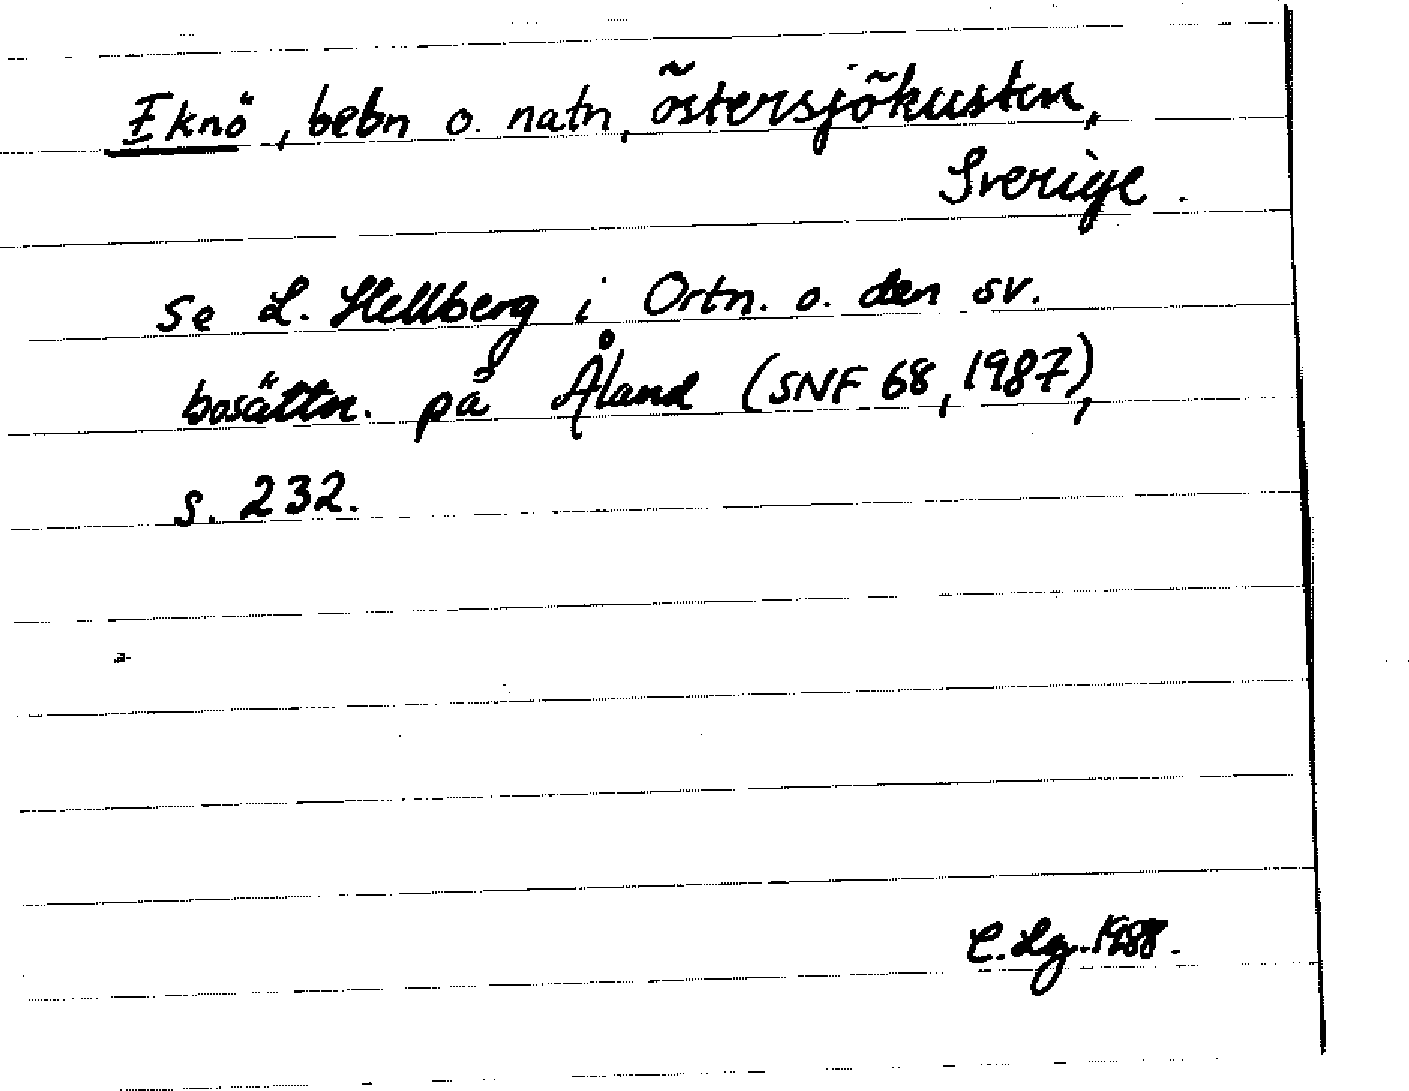 Eknö, bebn o. natn, östersjökusten,
Sverige.
Se L. Hellberg i Ortn. o. den sv.
bosättn. på Åland (SNF 68, 1987),
s. 232.
C. Lg. 1988.